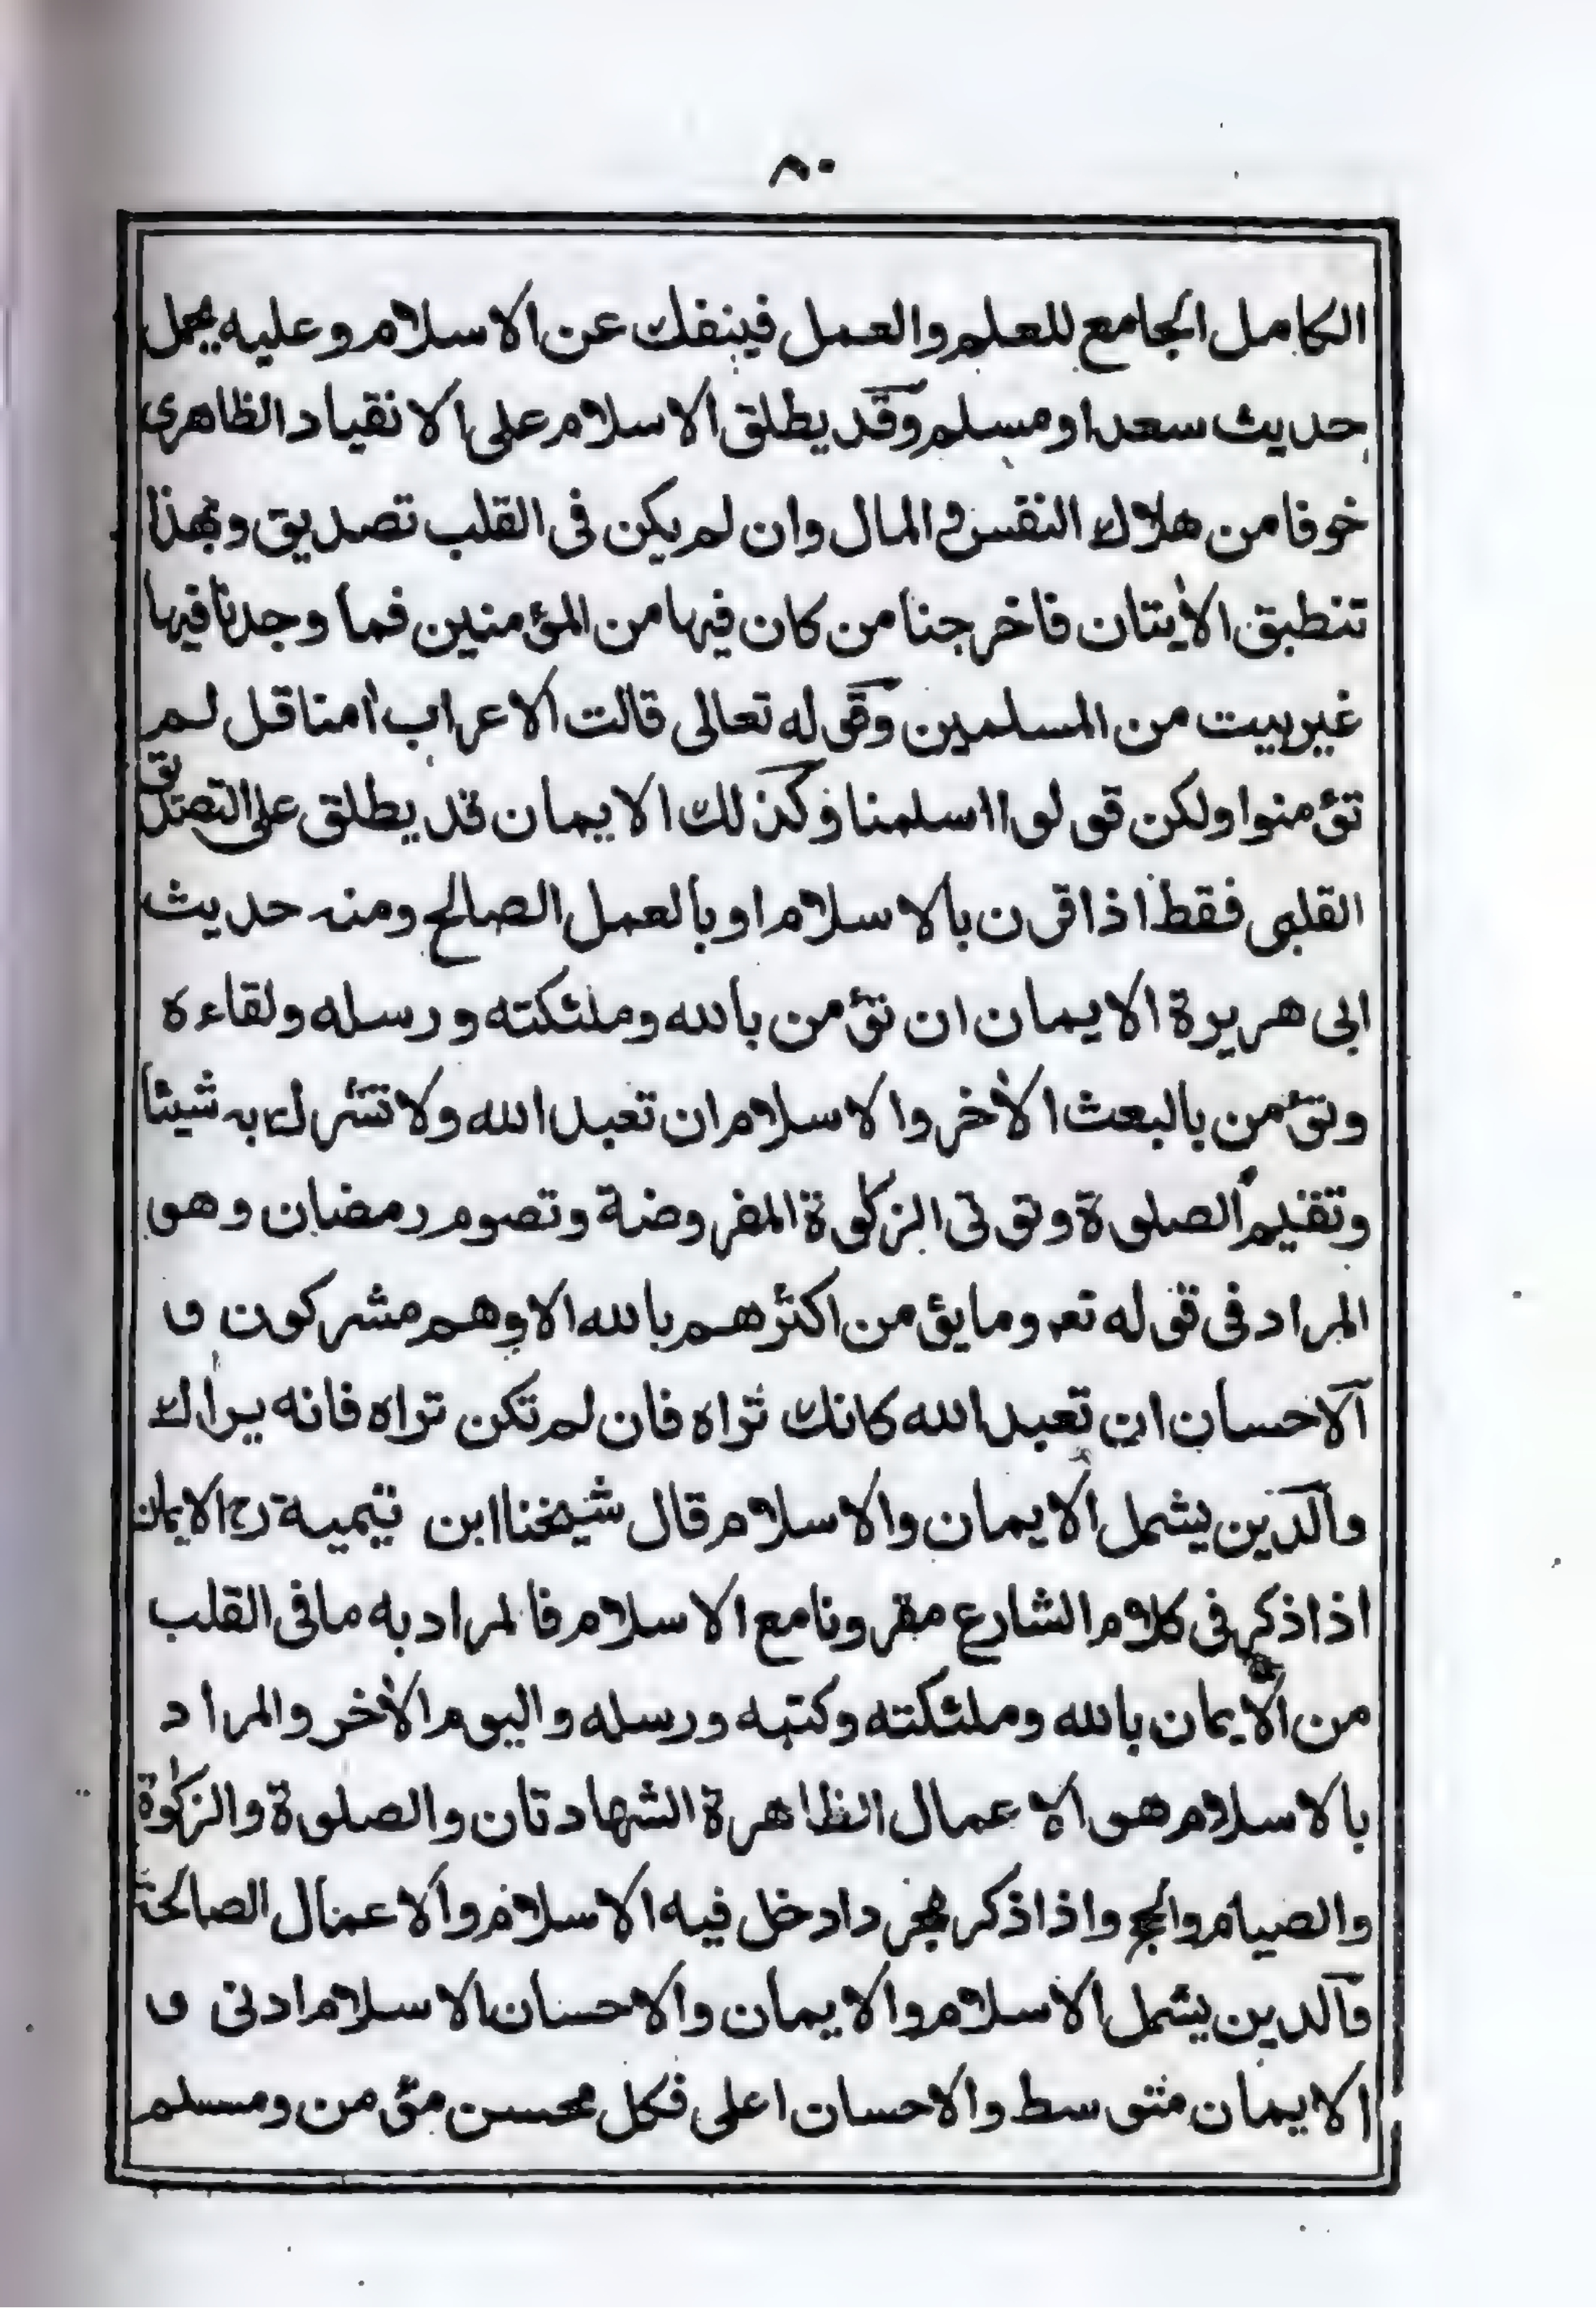 ٨٠
الكامل الجامع للعلم والعمل فينفك عن الاسلام وعليه يحمل
حديث سعد او مسلم وقد يطلق الاسلام على الانقياد الظاهرى
خوفا من هلاك النفس و المال وان لم يكن فى القلب تصديق وبهذا
تنطبق الأيتان فاخرجنا من كان فيها من المؤمنين فما وجدنا فيها
غير بيت من المسلمين وقوله تعالى قالت الاعراب أمنا قل لم
تؤمنوا ولكن قولوا اسلمنا وكذلك الايمان قد يطلق على التصديق
القلبى فقط اذا قرن بالاسلام او بالعمل الصالح ومنه حديث
ابى هريرة الايمان ان تؤمن بالله وملئكته ورسله ولقاءه
وتؤمن بالبعث الأخر والاسلام ان تعبد الله ولا تشرك به شيئا
وتقيم الصلوة وتؤتى الزكوة المفروضة وتصوم رمضان وهو
المراد فى قوله تعـ وما يؤمن اكثرهم بالله الا وهم مشركون و
الاحسان ان تعبد الله كانك تراه فان لم تكن تراه فانه يراك
والدين يشمل الايمان والاسلام قال شيخنا ابن تيمية رح الايمان
اذا ذكر فى كلام الشارع مقرونا مع الاسلام فالمراد به ما فى القلب
من الايمان بالله وملئكته وكتبه ورسله واليوم الأخر والمراد
بالاسلام هو الاعمال الظاهرة الشهادتان والصلوة والزكوة
والصيام والحج واذا ذكر مجردا دخل فيه الاسلام والاعمال الصالحة
والدين يشمل الاسلام والايمان والاحسان الاسلام ادنى و
الايمان متوسط والاحسان اعلى فكل محسن مؤمن ومسلم